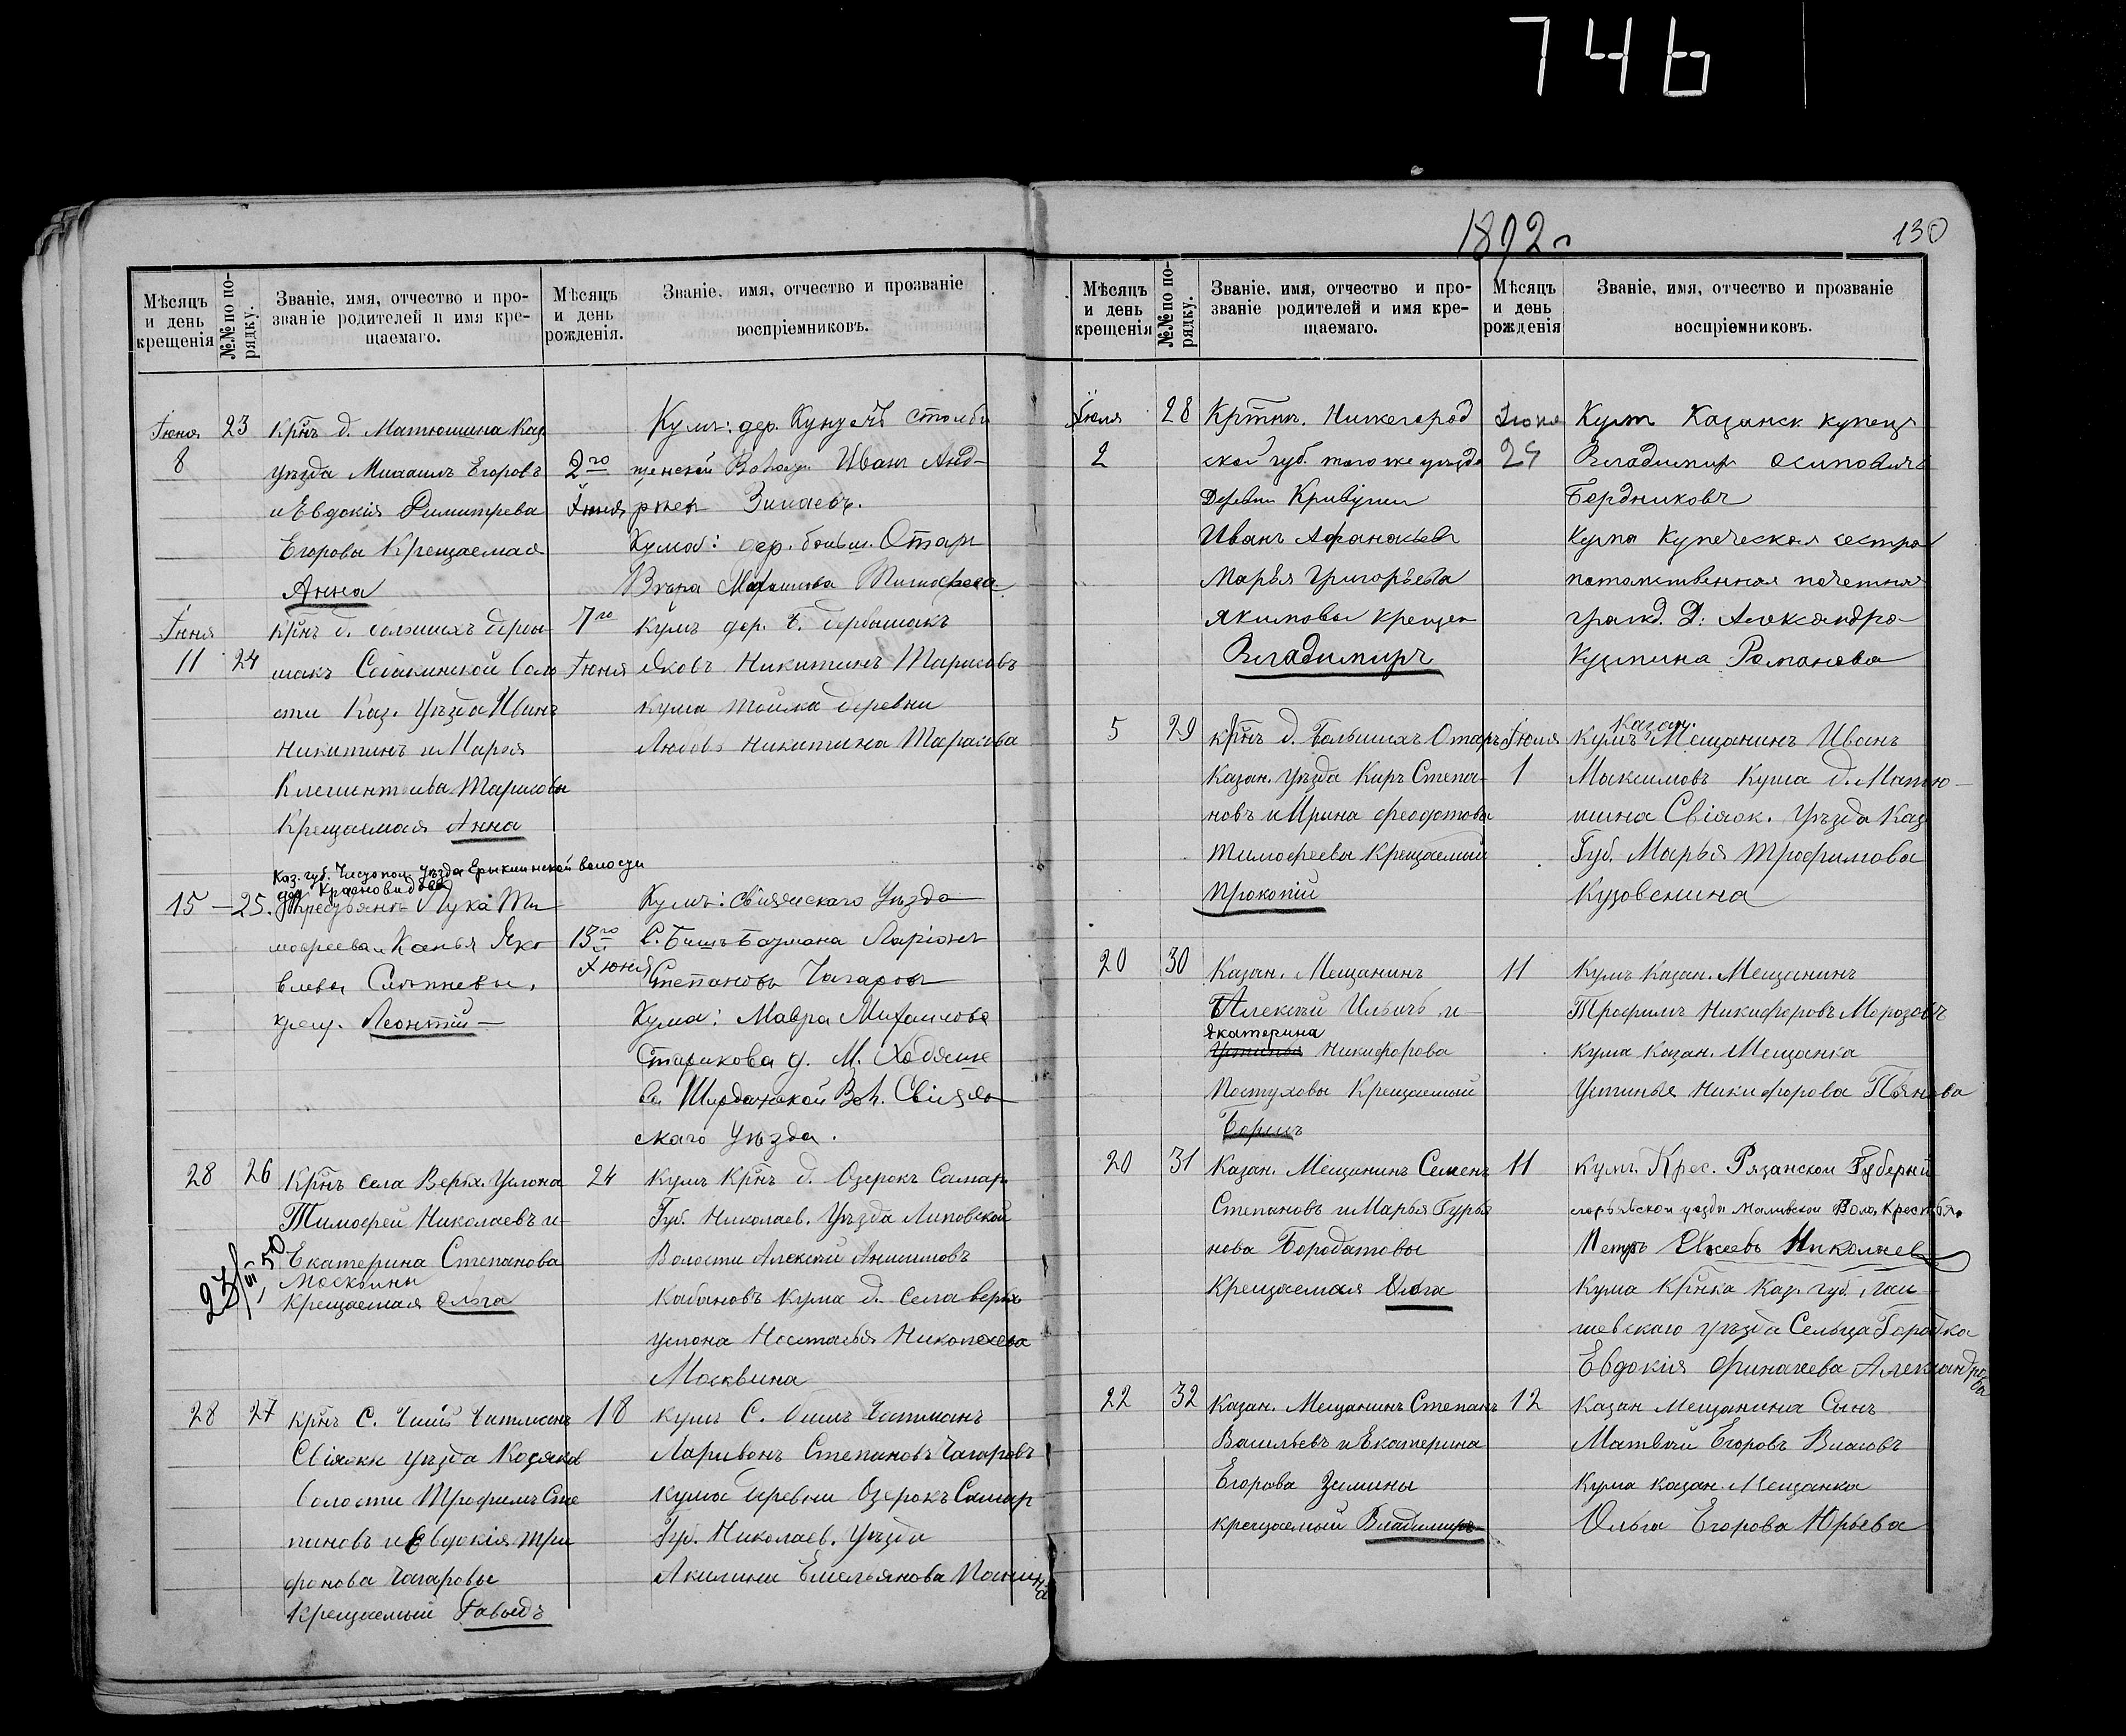 746
1892 г
130
Мѣсяцъ и день крещенія
№№ по порядку.
Званіе, имя, отчество и про-
званіе родителей и имя кре-
щаемаго.
Мѣсяцъ и день рожденія.
Званіе, имя, отчество и прозваніе
воспріемниковъ.
Іюня 8
23
Крнъ д. Матюшина Каз
уѣзда Михаилъ Егоровъ
и Евдокія Димитрева
Егоровы Крещаемая
Анна
2го Іюня
Кумъ: дер. Столби
щенской Иванъ Анд-
Кума: дер. больш. Отар
Вѣра Тимофеева
Іюня 11
24
Крнъ д. большихъ Дербы
шакъ воло
сти Каз. Уѣзда Иванъ
Никитинъ и Марья
Клементьева Тарасовы
Крещаемая Анна
7го Іюня
Кумъ дер. Б. Дербышакъ
Яковъ Никитинъ Тарасовъ
кума тойже деревни
Любовь Никитина Тарасова
15
25.
Каз. губ. Чистопол. Уѣзда Ерыклинской волости
дер. Красновидово
Крестьянъ Лука Ти
мофеева и Яко
влевы
крещ. Леонтій
13го Іюня
Кумъ: Свіяжскаго Уѣзда
С. Бишъ Батмана Ларіонъ
Степановъ Чагаровъ
Кума: Мавра Михаилова
Старикова д. М.
Вол. Свіяж
скаго Уѣзда.
28
26
Крнъ села Верхн. Услона
Тимофей Николаевъ и
Екатерина Степанова
Москвины
Крещаемая Ольга
24
Кумъ Крнъ д. Озерокъ Самар.
Губ. Николаев. Уѣзда Липовской
Волости Алексѣй Анисимовъ
Кабановъ кума д. села верхн
услона Настасья Николаева
Москвина
28
27
Крнъ С. Бишъ Батманъ
Свіяжк уѣзда
волости Трофимъ Сте
пановъ и Евдокія Три
фонова Чагаровы
Крещаемый Давыдъ
18
Кумъ С. Бишъ Батманъ
Ларивонъ Степановъ Чагаровъ
кума деревни Озерокъ Самар
Губ. Николаев. Уѣзда
Акилина Емельянова
Мѣсяцъ и день крещенія
№№ по порядку.
Званіе, имя, отчество и про-
званіе родителей и имя кре-
щаемаго.
Мѣсяцъ и день рожденія
Званіе, имя, отчество и прозваніе
воспріемниковъ.
Іюля 2
28
Нижегород
ской губ. того же уѣзда
Деревни
Иванъ Афанасьевъ
Марья Григорьева
Якимовы крещен
Владимиръ
Іюня
Кумъ Казанск купецъ
Владимиръ Осиповичъ
Бердниковъ
Кума Купеческая сестра
потомственная почетная
гражд. Д: Александра
Кузмина Романова
5
29
крнъ д. Большихъ Отаръ
Казан. Уѣзда Киръ Степа-
новъ и Ирина Феодотова
Тимофеевы Крещаемый
Прокопій
Іюля 1
Казан.
Кумъ Мещанинъ Иванъ
Максимовъ Кума д. Матю-
шина Свіяж. Уѣзда Каз
Губ. Марья Трофимова
20
30
Казан. Мещанинъ
Алексѣй Ильичъ и
Екатерина
Никифорова
Постуховы Крещаемый
Борисъ
11
Кумъ Казан. Мещанинъ
Трофимъ Никифоровъ Морозовъ
Кума Казан. Мещанка
Устинья Никифорова
20
31
Казан. Мещанинъ Семенъ
Степановъ и Марья Гурья
нова Бородатовы
Крещаемая Ольга
11
Кумъ Крес. Рязанской Губерніи
уезда Маливской Воло.
Петръ Николаев
Кума Крнка Каз. губ. Лаи
шевскаго уѣзда Сельца Городка
Евдокія Александрова
22
32
Казан. Мещанинъ Степанъ
Васильевъ и Екатерина
Егорова Зимины
крещаемый Владимиръ
12
Казан Мещанина Сынъ
Матвѣй Егоровъ Власовъ
Кума Казан. Мещанка
Ольга Егорова Юрьева